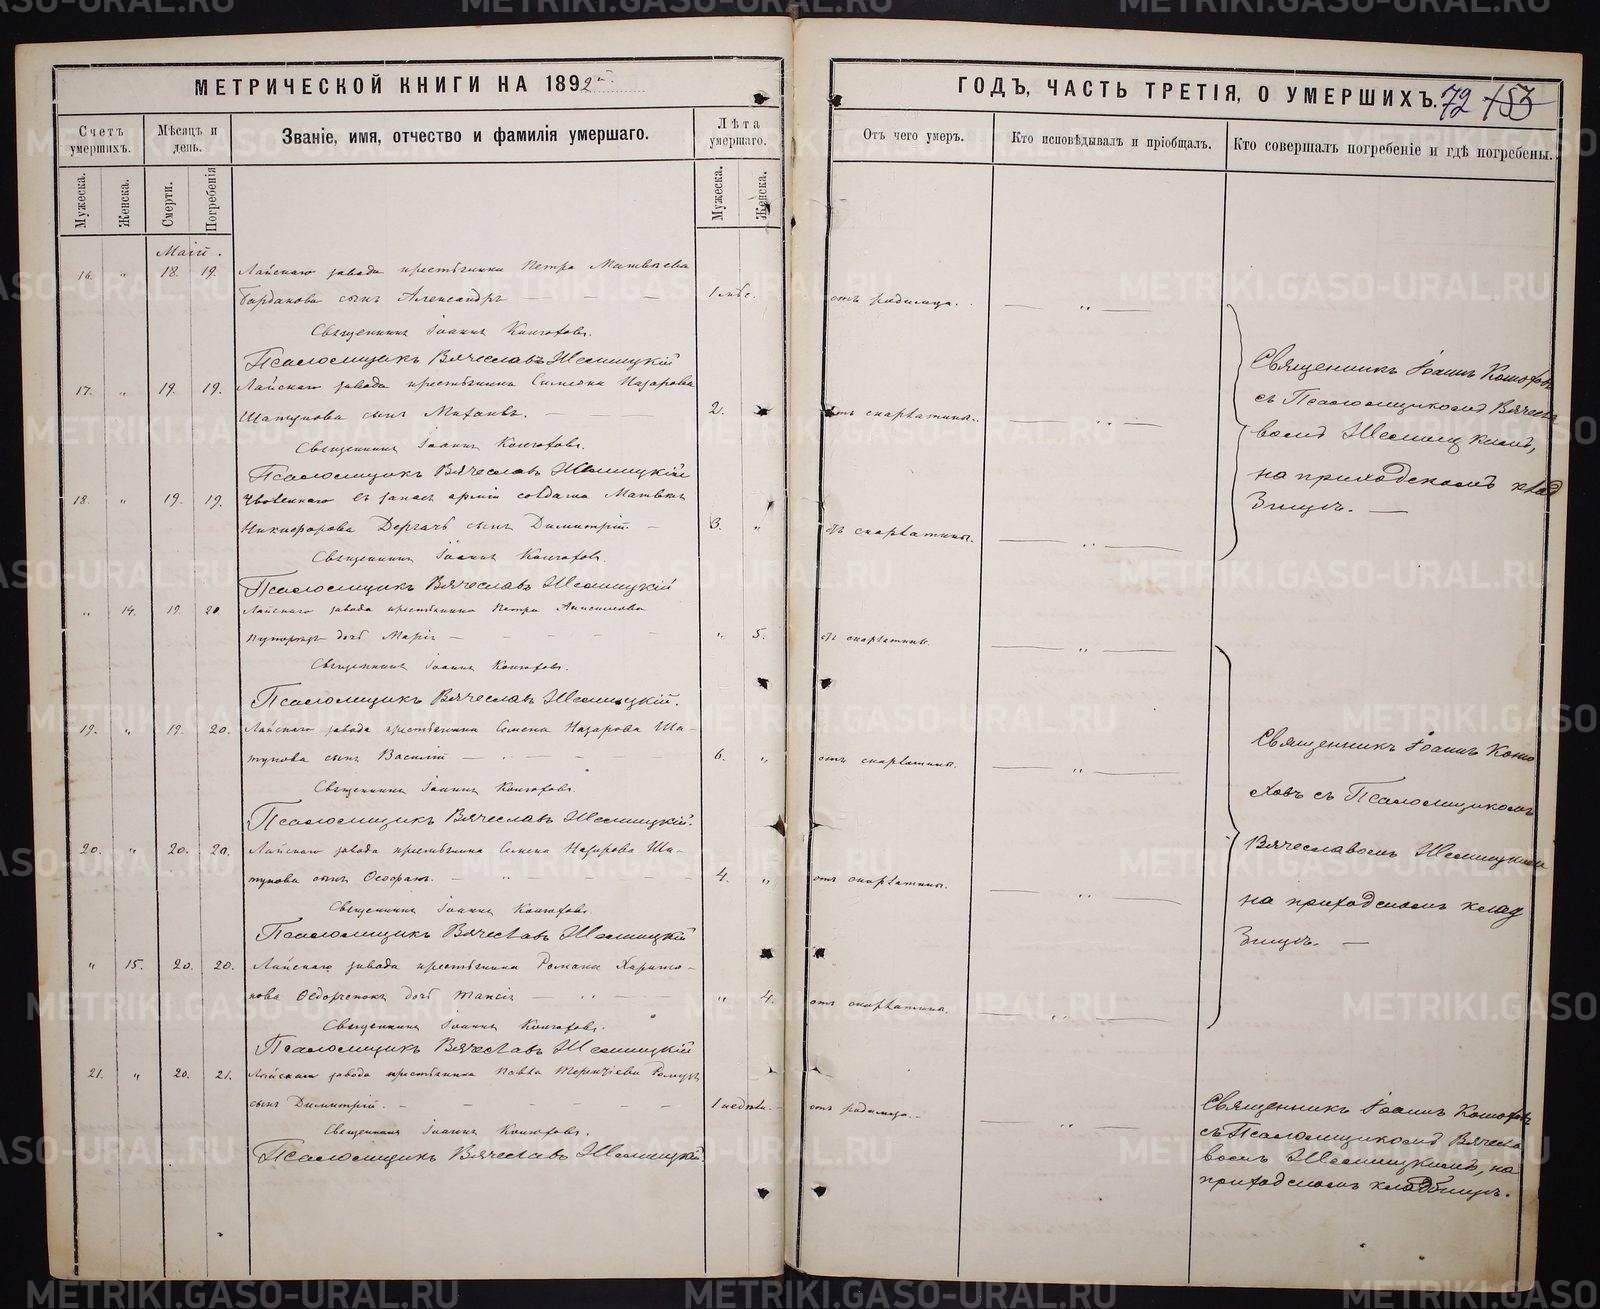 МЕТРИЧЕСКОЙ КНИГИ НА 1892й
Счетъ умершихъ.
Мѣсяцъ и день.
Званіе, имя, отчество и фамилія умершаго.
Лѣта умершаго.
Мужеска.
Женска.
Смерти.
Погребенія
Мужеска.
Женска.
Маій.
16. " 18. 19. Лайскаго завода крестьянина Петра Матвѣева
сынъ Александръ 1 мѣс.
Священникъ Іоаннъ Конюховъ.
Псаломщикъ Вячеславъ
17. " 19. 19. Лайскаго завода крестьянина Симеона Назарова
Шатунова сынъ Михаилъ. 2. "
Священникъ Іоаннъ Конюховъ.
Псаломщикъ Вячеславъ
18. " 19. 19. въ запасъ арміи солдата Матвѣя
Никифорова сынъ Димитрій 3. "
Священникъ Іоаннъ Конюховъ.
Псаломщикъ Вячеславъ
" 14. 19. 20 Лайскаго завода крестьянина Петра Анисимова
дочь Марія " 5.
Священникъ Іоаннъ Конюховъ.
Псаломщикъ Вячеславъ
19. " 19. 20. Лайскаго завода крестьянина Семена Назарова Ша-
тунова сынъ Василій 6. "
Священникъ Іоаннъ Конюховъ.
Псаломщикъ Вячеславъ
20. " 20. 20. Лайскаго завода крестьянина Семена Назарова Ша-
тунова сынъ 4. "
Священникъ Іоаннъ Конюховъ.
Псаломщикъ Вячеславъ
" 15. 20. 20. Лайскаго завода крестьянина Романа Харито-
нова дочь Таисія " 4.
Священникъ Іоаннъ Конюховъ.
Псаломщикъ Вячеславъ
21. " 20. 21. Лайскаго завода крестьянина Павла
сынъ Димитрій. 1 недѣли.
Священникъ Іоаннъ Конюховъ.
Псаломщикъ Вячеславъ
ГОДЪ, ЧАСТЬ ТРЕТІЯ, О УМЕРШИХЪ. 72 153
Отъ чего умеръ.
Кто исповѣдывалъ и пріобщалъ.
Кто совершалъ погребеніе и гдѣ погребены.
отъ родимца.
отъ скарлатины.
отъ скарлатины.
отъ скарлатины.
отъ скарлатины.
отъ скарлатины.
отъ скарлатины.
отъ родимца.
Священникъ Іоаннъ Конюховъ
съ Псаломщикомъ Вячесла
вомъ
на приходскомъ клад
бищѣ.
Священникъ Іоаннъ Коню
ховъ съ Псаломщикомъ
Вячеславомъ
на приходскомъ клад
бищѣ.
Священникъ Іоаннъ Конюховъ
съ Псаломщикомъ Вячесла
вомъ на
приходскомъ кладбищѣ.
METRIKI.GASO-URAL.RU